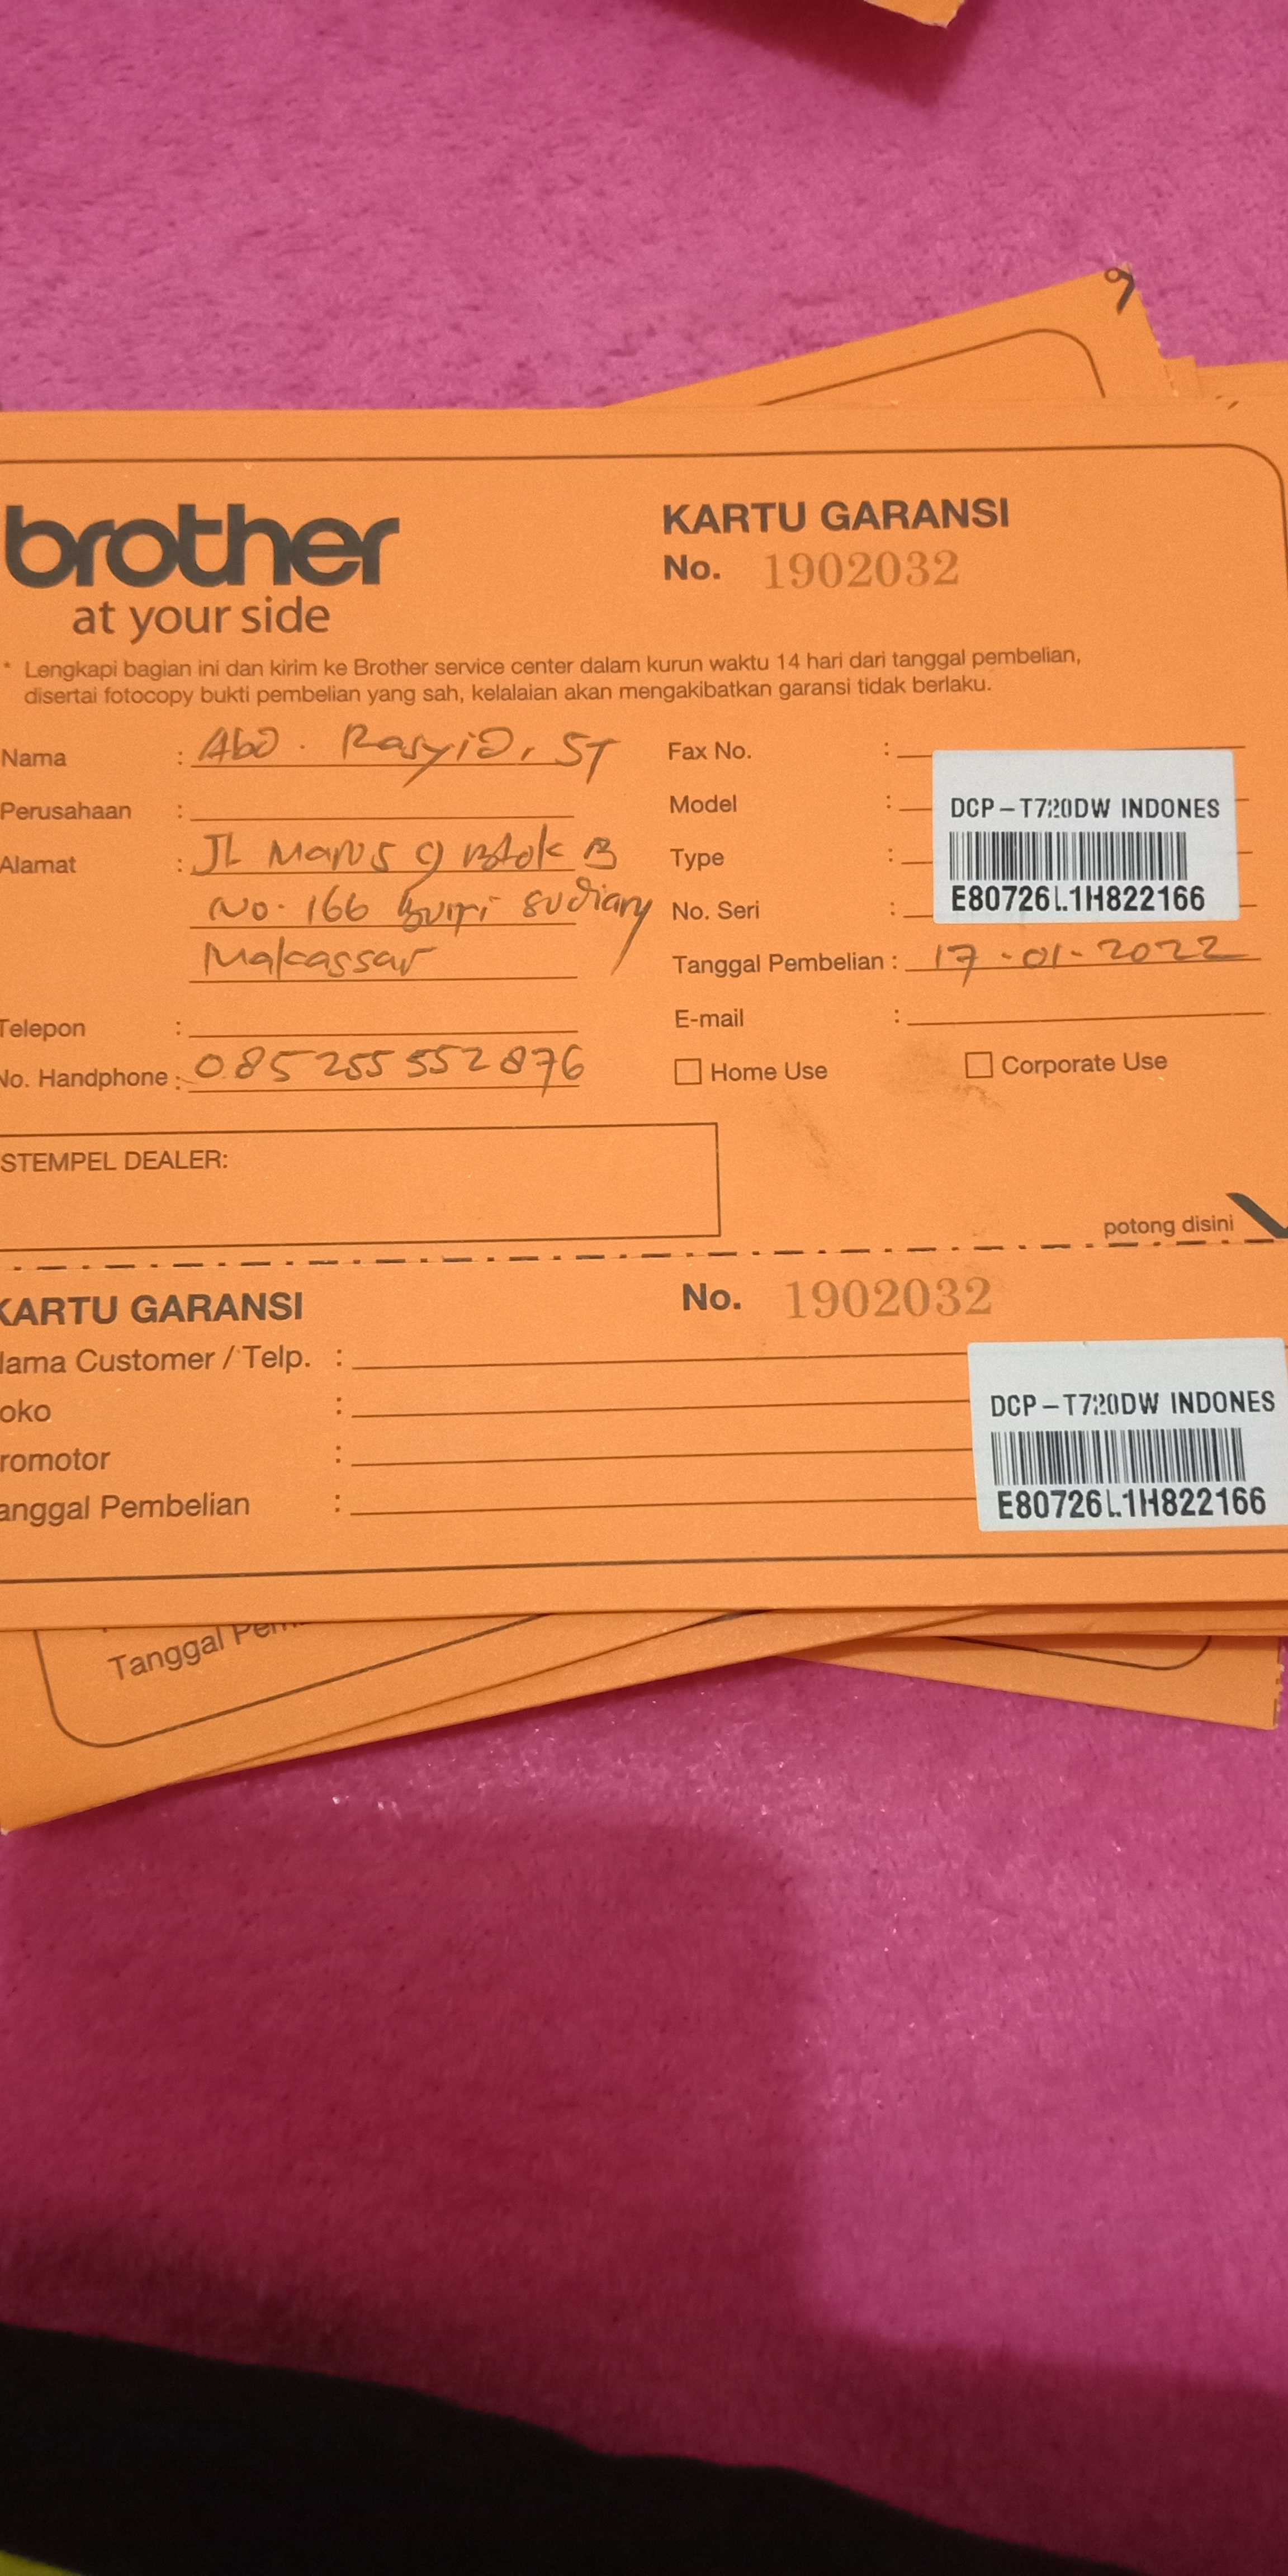 brother
at your side
KARTU GARANSI
No. 1902032
* Lengkapi bagian ini dan kirim ke Brother service center dalam kurun waktu 14 hari dari tanggal pembelian,
disertai fotocopy bukti pembelian yang sah, kelalaian akan mengakibatkan garansi tidak berlaku.
Nama : Abd. Rasyid, ST
Perusahaan :
Alamat : JL Blok B
No. 166 Bumi sudiang
Makassar
Telepon :
No. Handphone : 085255552876
Fax No. :
Model :
Type :
No. Seri :
DCP-T720DW INDONES
E80726L1H822166
Tanggal Pembelian : 17-01-2022
E-mail :
Home Use
Corporate Use
STEMPEL DEALER:
potong disini
KARTU GARANSI
No. 1902032
ama Customer / Telp. :
oko :
romotor :
anggal Pembelian :
DCP-T720DW INDONES
E80726L1H822166
Tanggal Pem
9